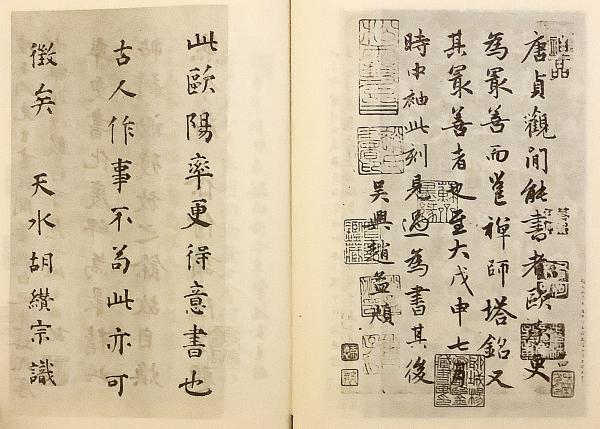 唐貞觀間能書者歐陽率更
為冣善而邕禪師塔銘又
其冣善者也至大戊申七月
時中袖此刻見過為書其後
吳興趙孟頫
此歐陽率更得意書也
古人作事不苟此亦可
徵矣 天水胡纘宗識